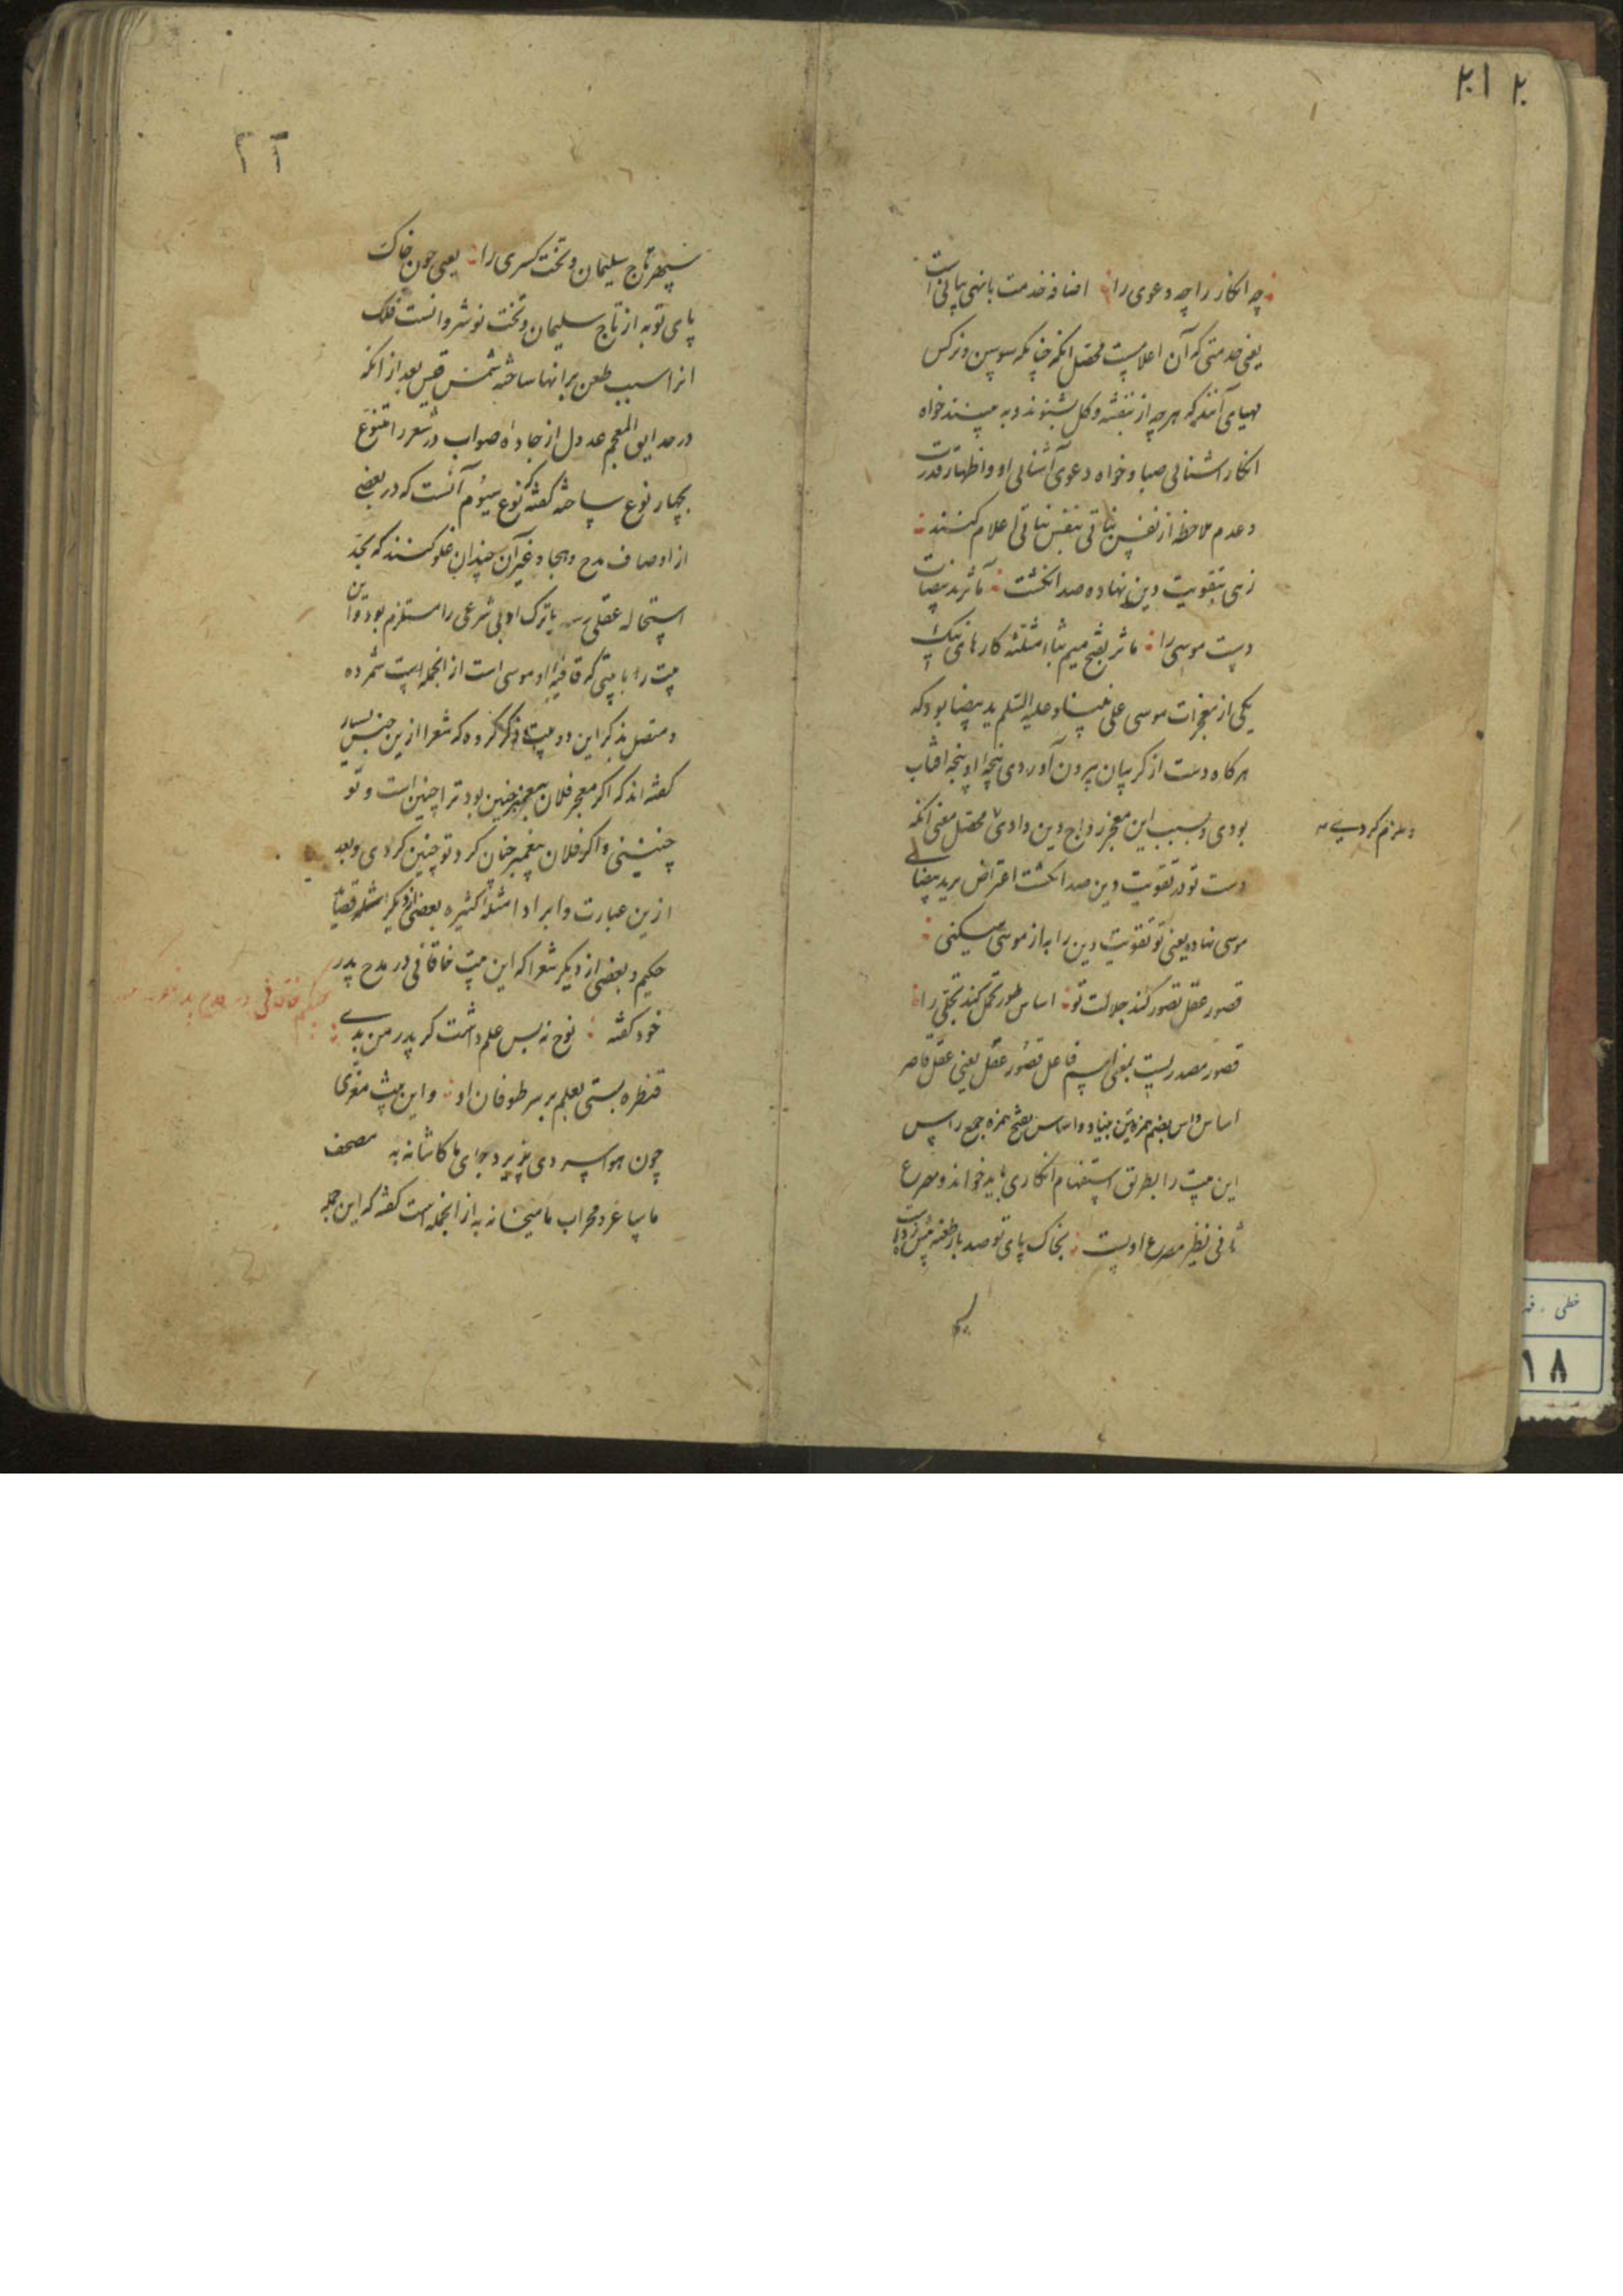 ۲۰۱ ۲
چه انکار را چه دعوی را اضافه خدمت بانهی بیانی است
یعنی خدمتی که آن اعلامست محصل انکه چنانکه سوسن و نرکس
مهیای آنند که هرچه از بنفشه و کل بشنوند و به بینند خواه
انکار اشنائی صبا و خواه دعوی آشنائی او و اظهار قدرت
و عدم ملاحظه از نفس نباتی بنفس نباتی اعلام کنند
زهی بتقویت دین نهاده صد انکشت مآثر ید بیضات
دست موسی را مآثر بفتح میم بثاء مثلثه کارهای نیک
یکی از معجزات موسی علی نبینا و علیه السلم ید بیضا بود که
هرکاه دست از کریبان بیرون آوردی پنجه او پنجه افتاب
بودی و بسبب این معجز رواج دین دادی محصل معنی انکه
دست تو در تقویت دین صد انکشت اعتراض بر ید بیضای
موسی نهاده یعنی تو تقویت دین را به از موسی میکنی
قصور عقل تصور کند جلالت تو اساس طور تحمل کند تجلی را
قصور مصدریست بمعنی اسم فاعل قصور عقل یعنی عقل قاصر
اساس و اس بضم همزه بنیاد و اساس بفتح همزه جمع راس
این بیت را بطریق استفهام انکاری باید خواند و مصرع
ثانی نظیر مصرع اولست بخاک پای تو صد بار طعنه بیش زده است
سپهر تاج سلیمان و تخت کسری را یعنی چون خاک
پای تو به از تاج سلیمان و تخت نوشروانست فلک
انرا سبب طعن برانها ساخته شمس قیس بعد از انکه
در حدایق المعجم عدول از جاده صواب در شعر را متنوع
بچهار نوع ساخته کفته که نوع سیوم آنست که در بعضی
از اوصاف مدح و هجا و غیر آن چندان غلو کنند که بحد
استحاله عقلی رسد یا ترک ادبی شرعی را مستلزم بود و این
بیت را با بیتی که قافیه او موسی است از انجمله است شمرده
و متصل بذکر این دو بیت ذکر کرده که شعرا ازین جنس بسیار
کفته اند که اکر معجز فلان پیغمبر چنین بود ترا چنین است و تو
چنینی و اکر فلان پیغمبر چنان کرد تو چنین کردی و بعد
ازین عبارت و ایراد امثله کثیره بعضی از دیکر امثله قصاید
حکیم و بعضی از دیکر شعرا که این بیت خاقانی در مدح پدر
خود کفته نوح نه بس علم داشت کر پدر من بدی
قنطره بستی بعلم بر سر طوفان او و این بیت معزی
چون هوا سردی پذیرد جای ما کاشانه به مصحف
ما ساغر و محراب ما میخانه به از انجمله است کفته که این جمله
حکیم خاقانی در مدح پدر خود
خطی
۱۸